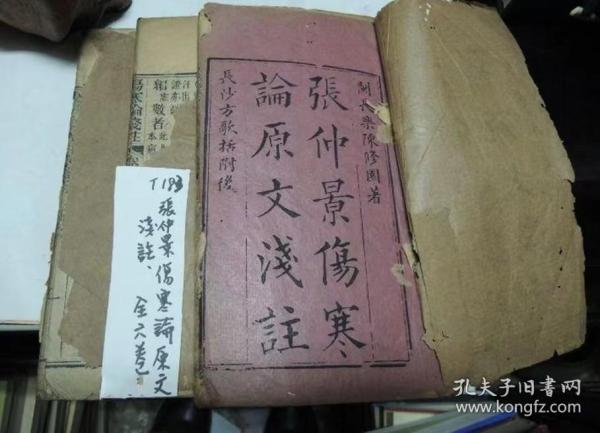 閩長樂陳修園著
張仲景傷寒
論原文淺註
長沙方歌括附後
傷寒論淺註
T183
張仲景傷寒論原文
淺註、
全六卷
孔夫子旧书网
www.kongfz.com